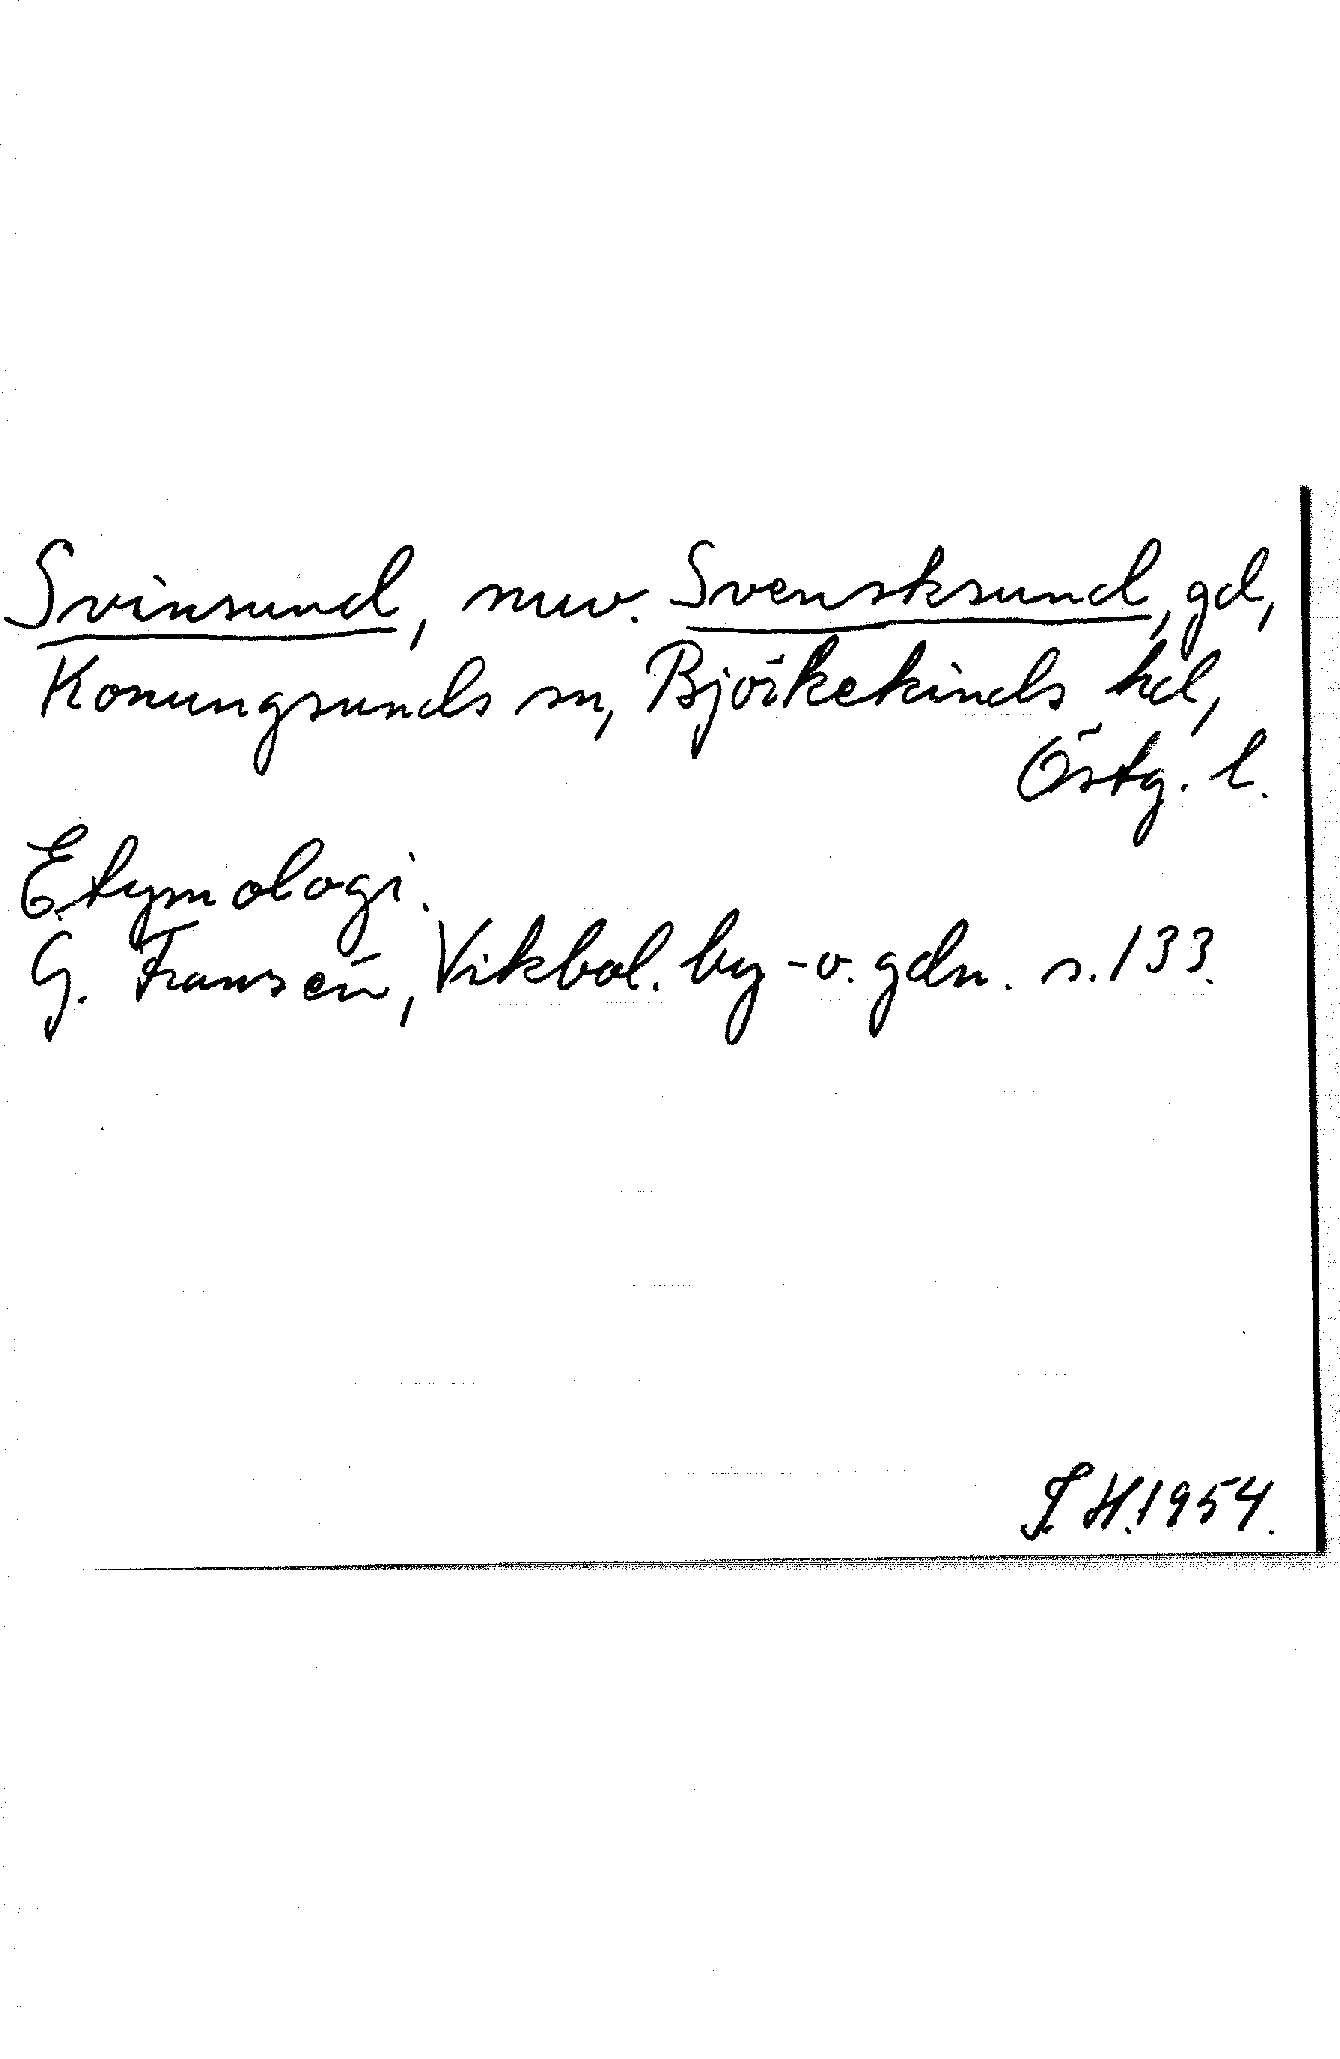 Svinsund, nuv. Svensksund, gd,
Konungsunds sn, Björkekinds hd,
Östg. l.
Etymologi.
G. Fransén, Vikbol. by- o. gdn. s. 133.
F. H. 1954.